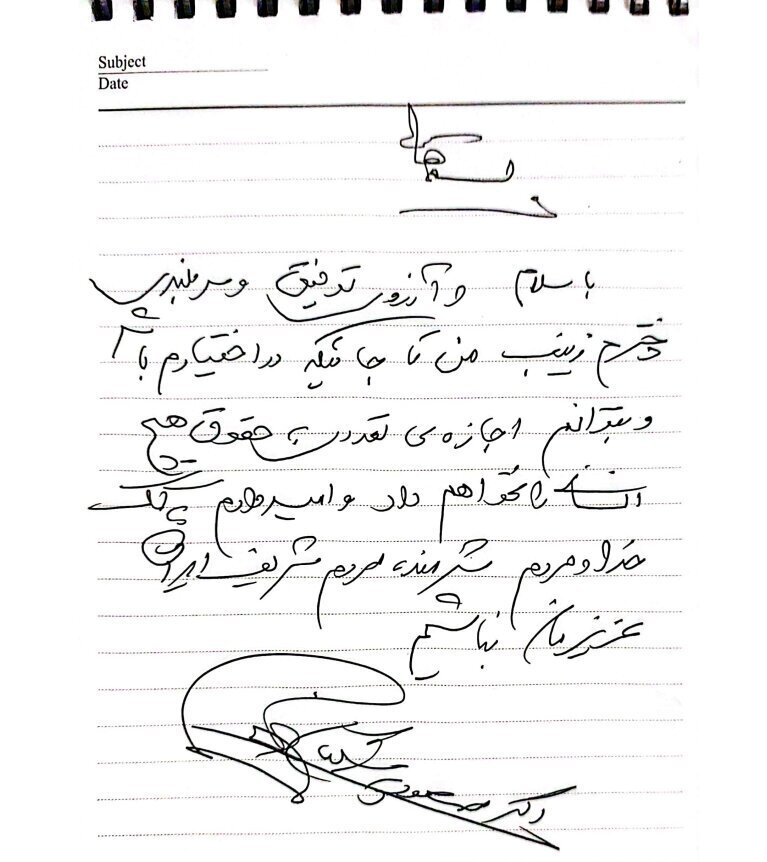 Subject
Date
بسمه تعالی
با سلام و آرزوی توفیق و سربلندی
دخترم زینب من تا جائیکه در اختیارم باشد
و بتوانم اجازه‌ی تعدی به حقوق هیچ
انسانی را نخواهم داد و امیدوارم به کمک
خدا و مردم شرمنده مردم شریف ایران
عزیزمان نباشیم
دکتر